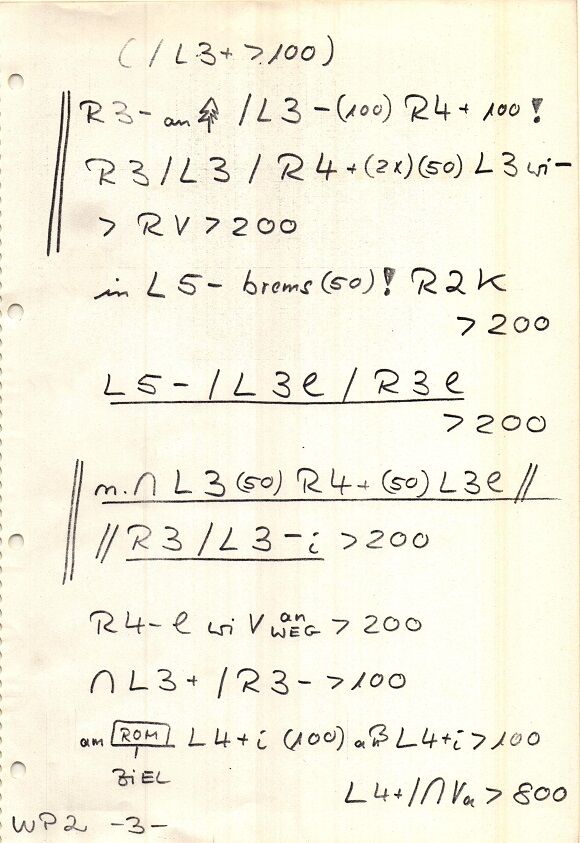 (/L3+ >100)
R3- an /L3-(100) R4+ 100!
R3/L3/R4+(2x)(50) L3 wi-
> RV>200
in L5- brems(50)! R2K
>200
L5-/L3e/R3e
>200
m.∩ L3(50) R4+(50) L3e//
//R3/L3-i >200
R4-e wi V an WEG >200
∩L3+/R3->100
am ROM L4+i (100) aß L4+i>100
ZiEL
L4+/∩Va>800
WP2 -3-